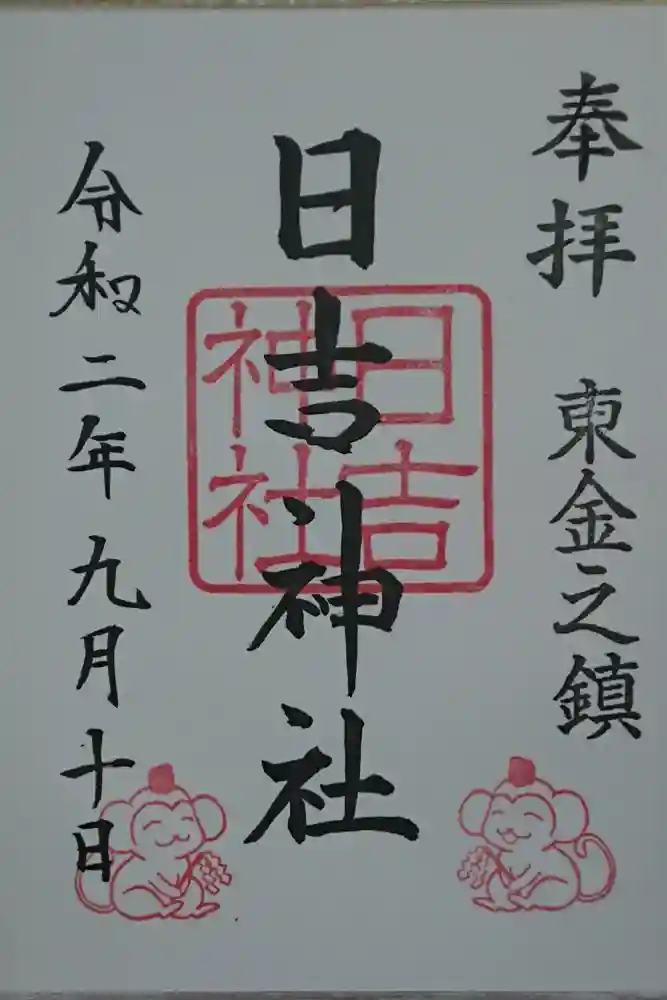 奉拝　東金之鎮
日吉神社
日吉神社
令和二年九月十日